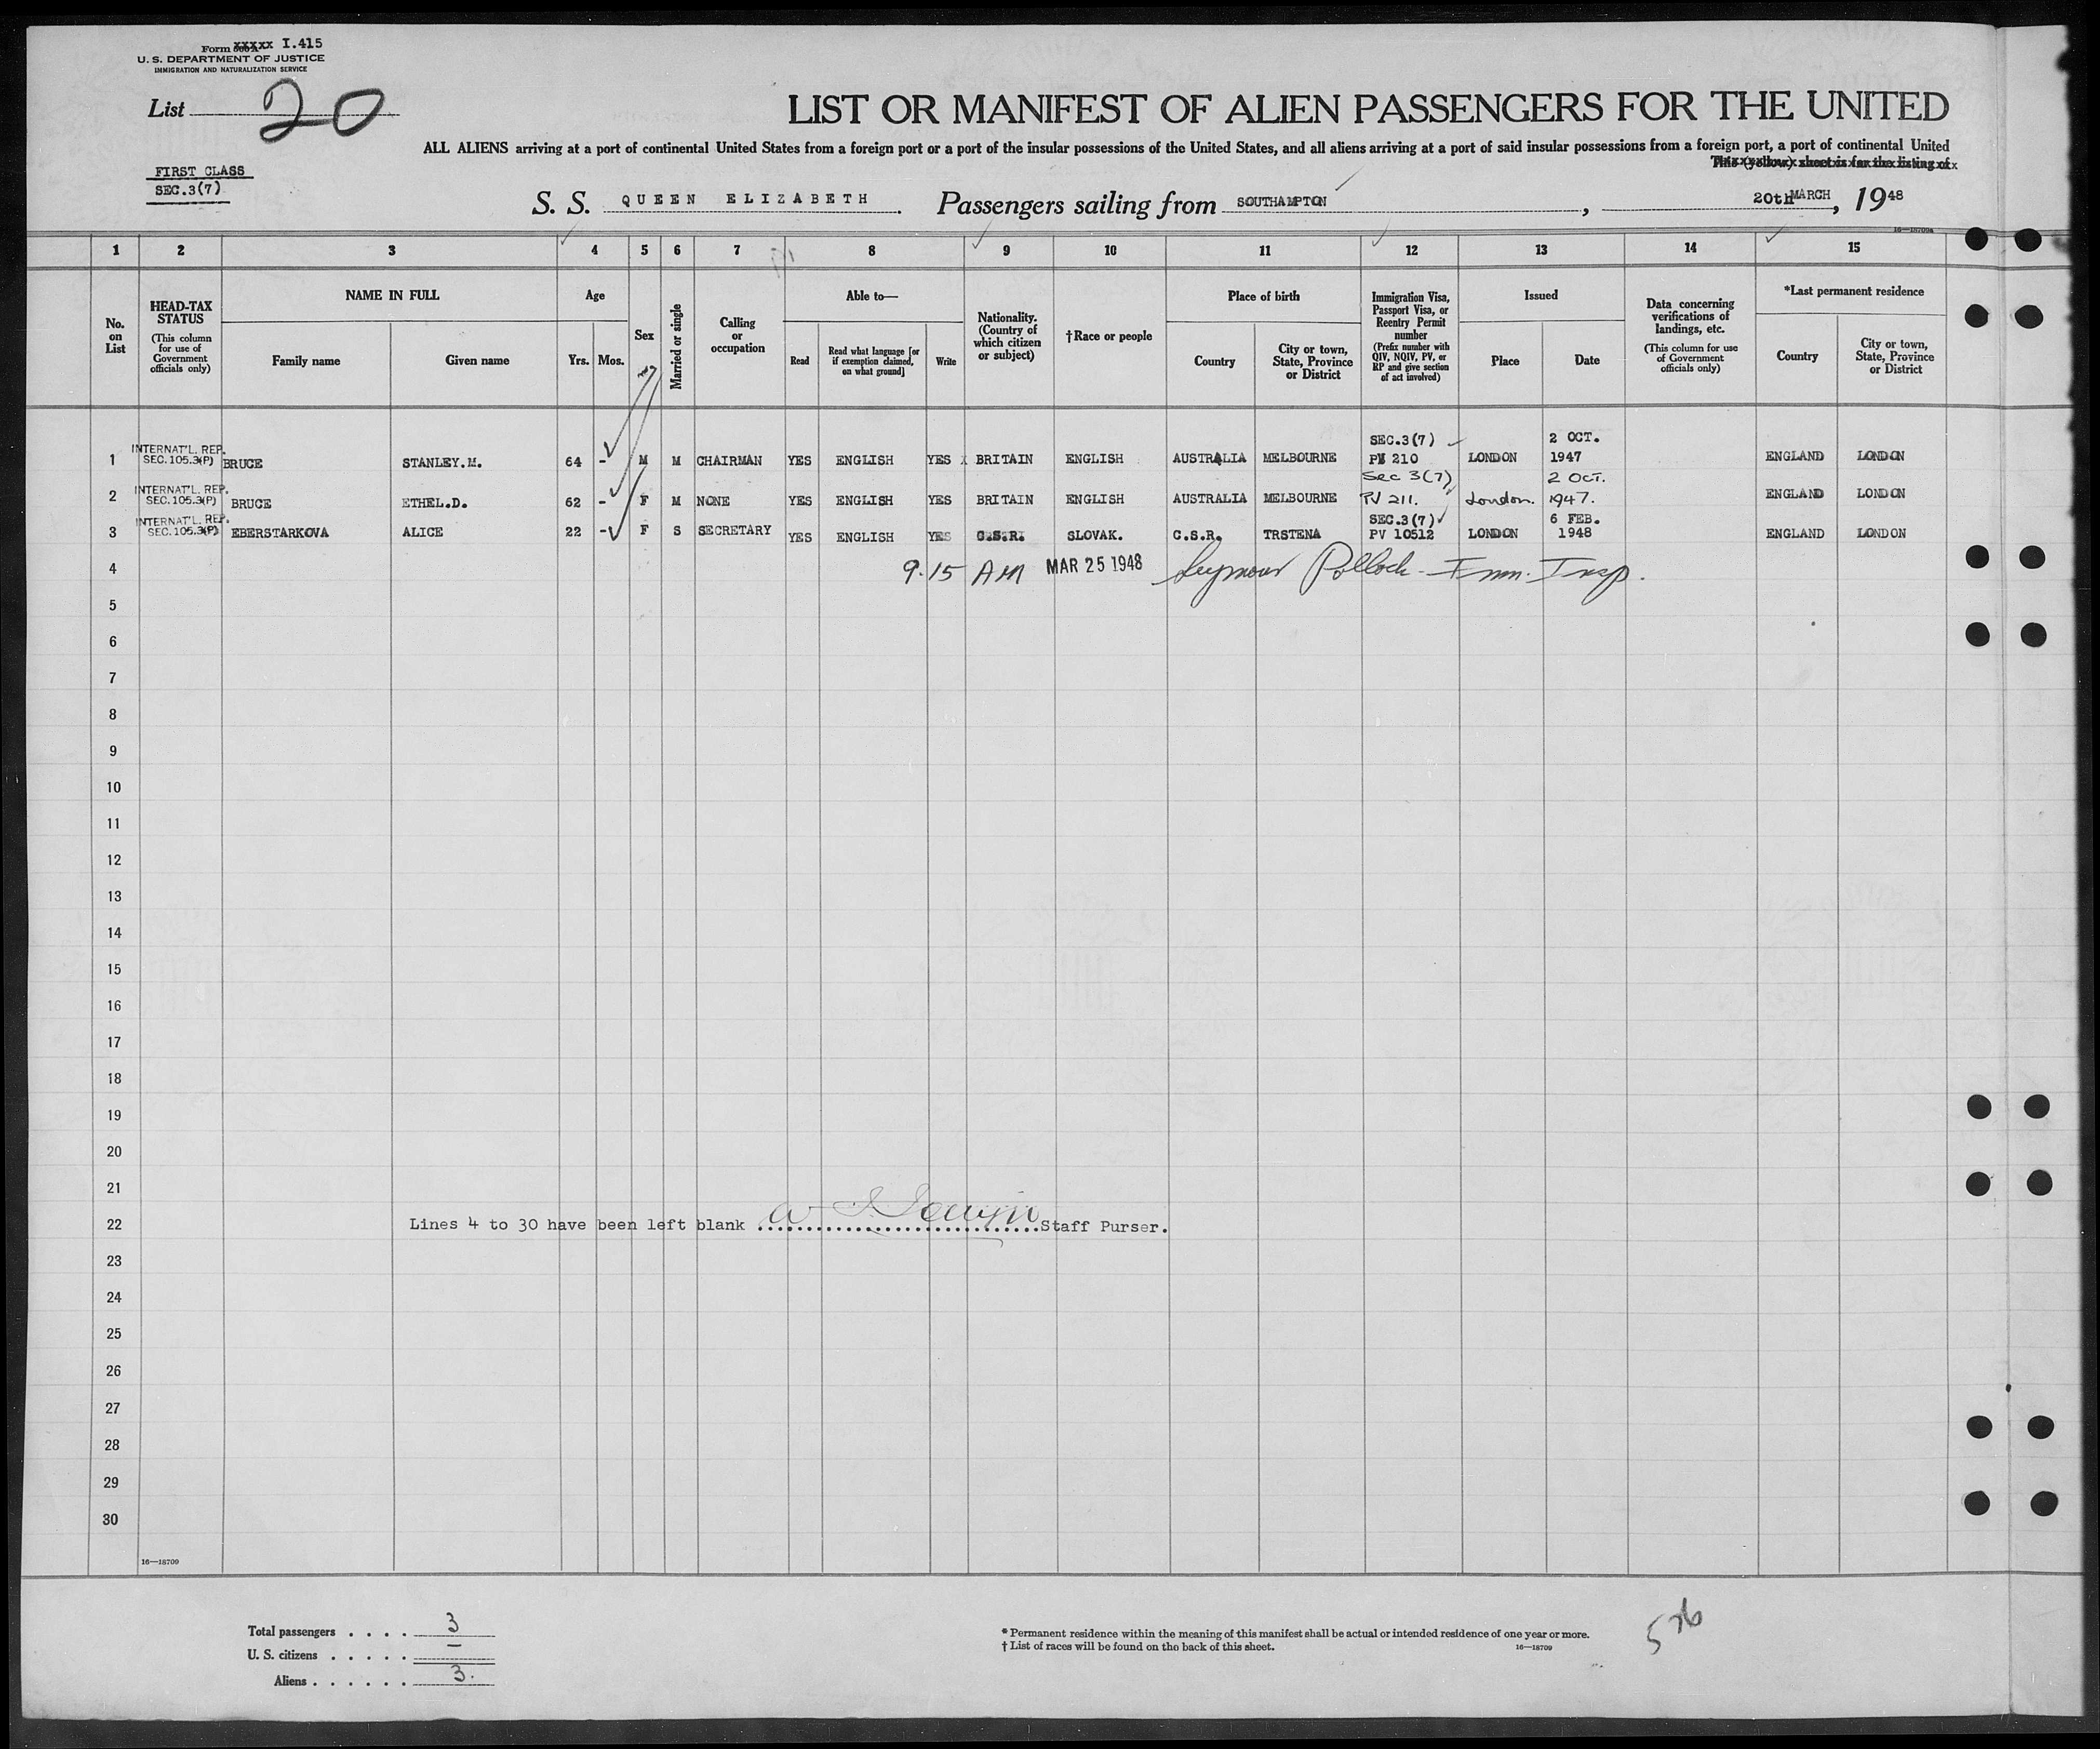 Form I.415
U. S. DEPARTMENT OF JUSTICE
IMMIGRATION AND NATURALIZATION SERVICE
List 20
LIST OR MANIFEST OF ALIEN PASSENGERS FOR THE UNITED
ALL ALIENS arriving at a port of continental United States from a foreign port or a port of the insular possessions of the United States, and all aliens arriving at a port of said insular possessions from a foreign port, a port of continental United
This (yellow) sheet is for the listing of
FIRST CLASS
SEC.3(7)
S. S. QUEEN ELIZABETH. Passengers sailing from SOUTHAMPTON, 20th MARCH, 1948
1 2 3 4 5 6 7 8 9 10 11 12 13 14 15
No. on List
HEAD-TAX STATUS
(This column for use of Government officials only)
NAME IN FULL
Family name Given name
Age
Yrs. Mos.
Sex
Married or single
Calling or occupation
Able to—
Read Read what language [or if exemption claimed, on what ground] Write
Nationality. (Country of which citizen or subject)
†Race or people
Place of birth
Country City or town, State, Province or District
Immigration Visa, Passport Visa, or Reentry Permit number
(Prefix number with QIV, NQIV, PV, or RP and give section of act involved)
Issued
Place Date
Data concerning verifications of landings, etc.
(This column for use of Government officials only)
*Last permanent residence
Country City or town, State, Province or District
1 INTERNAT'L. REP. SEC.105.3(P) BRUCE STANLEY.M. 64 - M M CHAIRMAN YES ENGLISH YES BRITAIN ENGLISH AUSTRALIA MELBOURNE SEC.3(7) PV 210 LONDON 2 OCT. 1947 ENGLAND LONDON
2 INTERNAT'L. REP. SEC.105.3(P) BRUCE ETHEL.D. 62 - F M NONE YES ENGLISH YES BRITAIN ENGLISH AUSTRALIA MELBOURNE Sec 3(7) PV 211. London. 2 Oct. 1947. ENGLAND LONDON
3 INTERNAT'L. REP. SEC.105.3(P) EBERSTARKOVA ALICE 22 - F S SECRETARY YES ENGLISH YES C.S.R. SLOVAK. C.S.R. TRSTENA SEC.3(7) PV 10512 LONDON 6 FEB. 1948 ENGLAND LONDON
4 9.15 AM MAR 25 1948 Seymour Pollock - Imm. Insp.
5
6
7
8
9
10
11
12
13
14
15
16
17
18
19
20
21
22 Lines 4 to 30 have been left blank Staff Purser.
23
24
25
26
27
28
29
30
16—18709
Total passengers . . . . 3
U. S. citizens . . . . . —
Aliens . . . . . . 3.
* Permanent residence within the meaning of this manifest shall be actual or intended residence of one year or more.
† List of races will be found on the back of this sheet. 16—18709